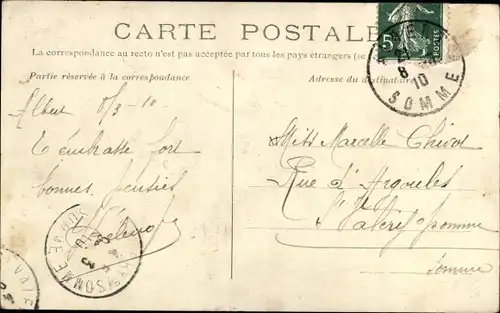 CARTE POSTALE
La correspondance au recto n'est pas acceptée par tous les pays étrangers (se
Partie réservée à la correspondance
Adresse du destinataire
5c POSTES
8 10
SOMME
Albert 8/3-10-
T'embrasse fort
bonnes pensées
Miss Marcelle
Rue d'Argoules
St Valery s/Somme
Somme
SOMME